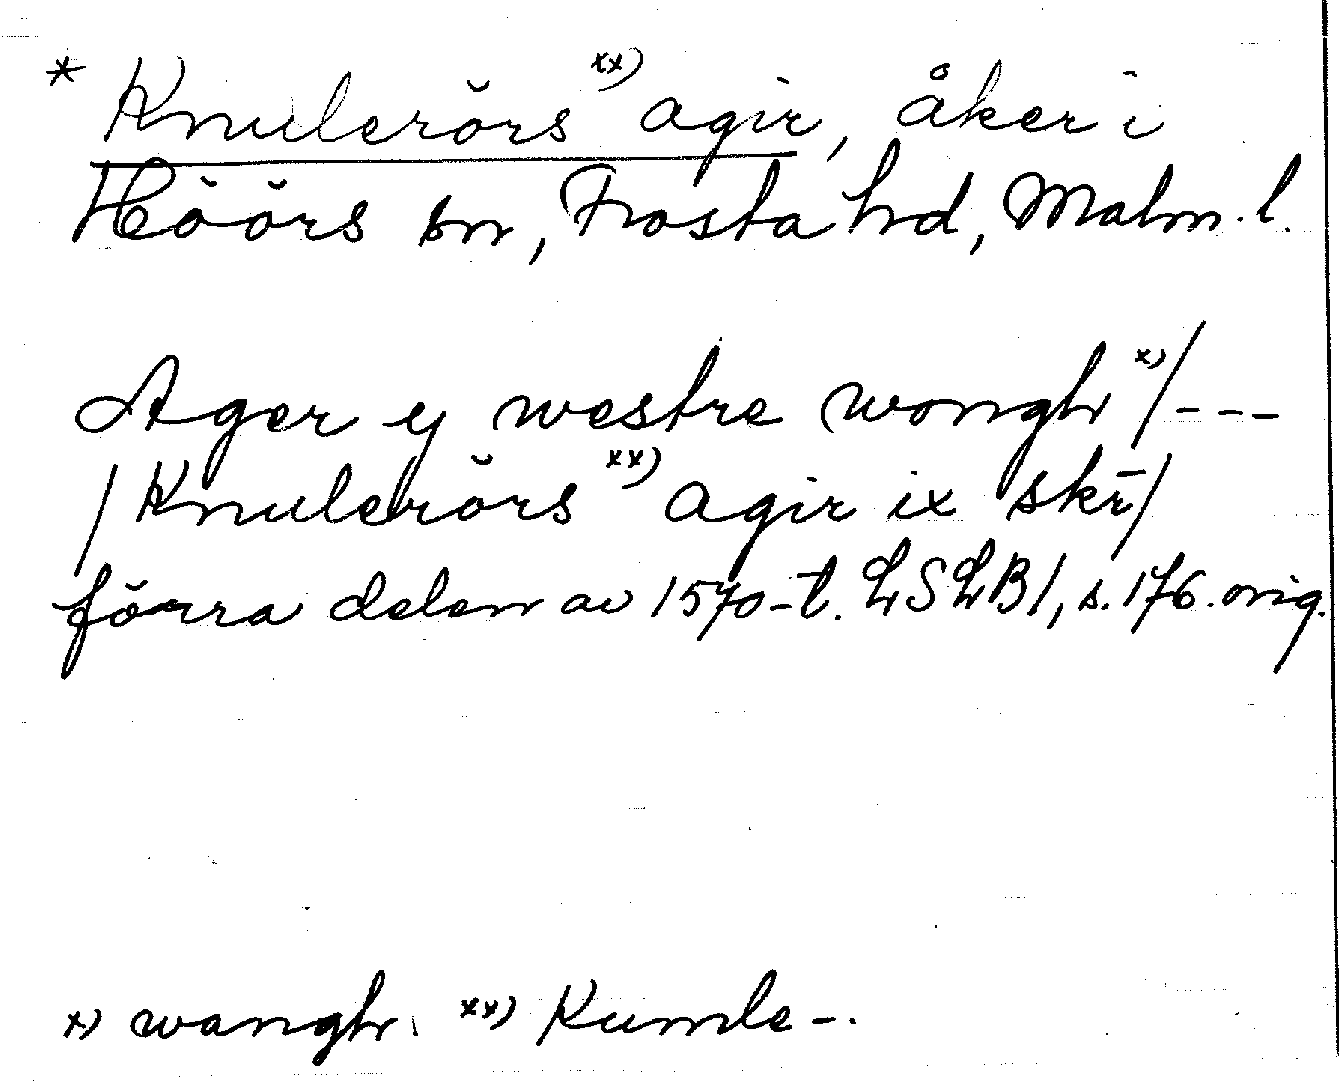 * Knulerörs xx) agir, åker i
Höörs sn, Frosta hd, Malm. l.
Ager ey westre wongh x) / - - -
/ Knulerörs xx) agir ix skr̄ /
förra delen av 1570-t. LSLB 1, s. 176. orig.
x) wangh. xx) Kumle-.